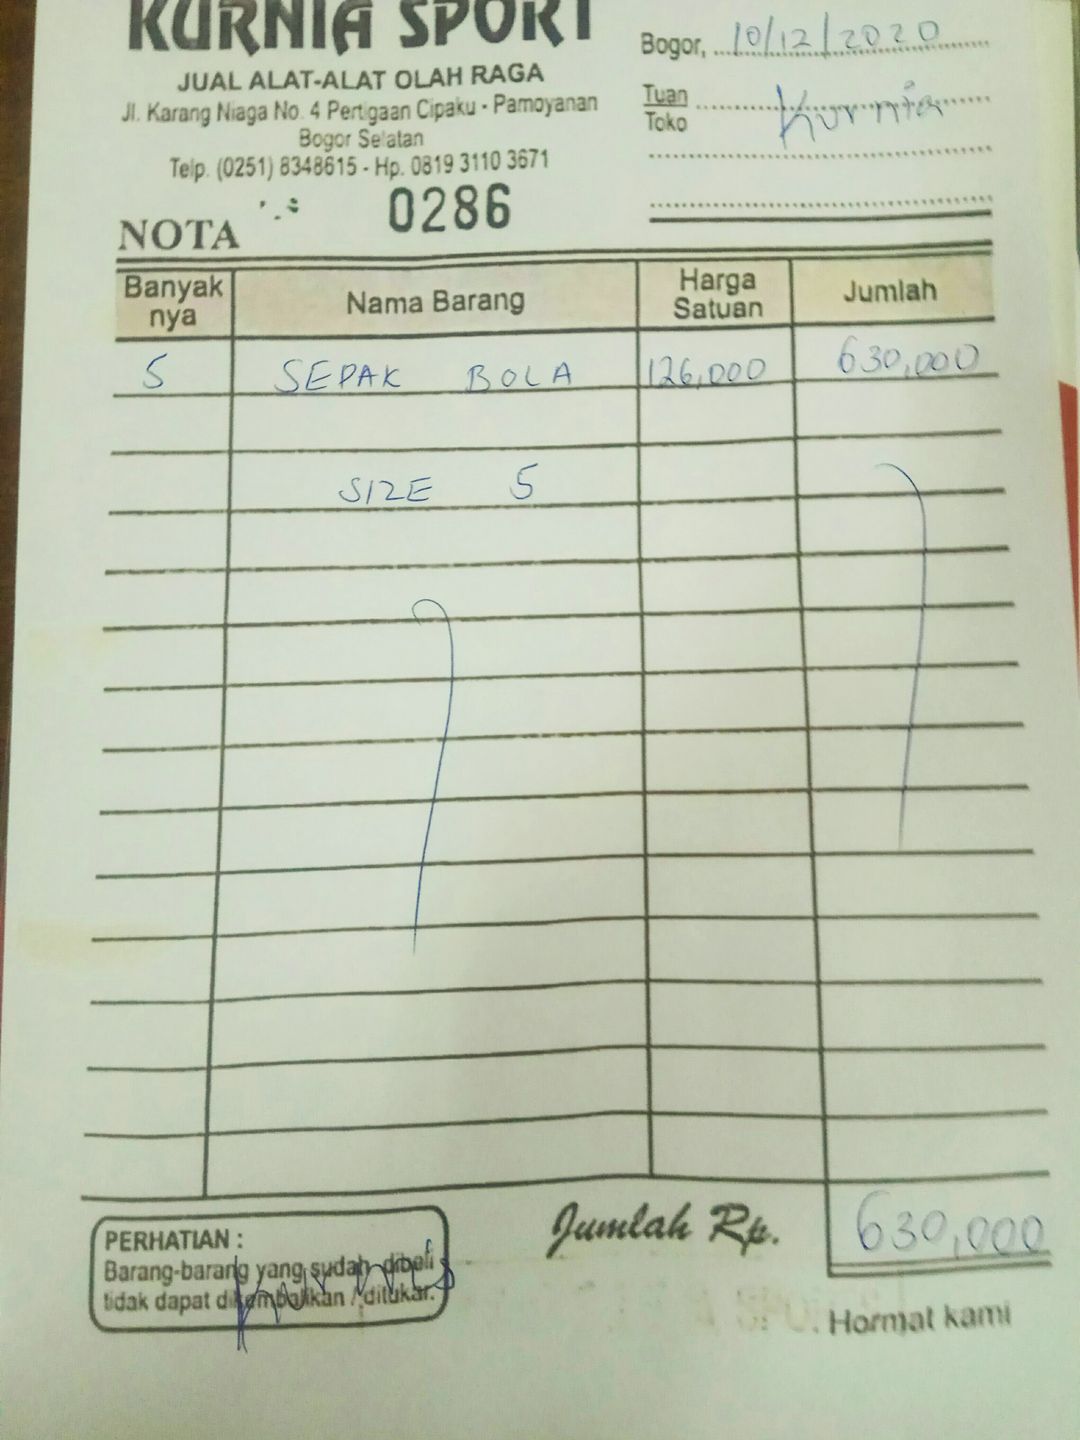 KURNIA SPORT
JUAL ALAT-ALAT OLAH RAGA
Jl. Karang Niaga No. 4 Pertigaan Cipaku - Pamoyanan
Bogor Selatan
Telp. (0251) 8348615 - Hp. 0819 3110 3671
Bogor, 10/12/2020
Tuan
Toko Kurnia
NOTA 0286
Banyak nya Nama Barang Harga Satuan Jumlah
5 SEPAK BOLA 126,000 630,000
SIZE 5
Jumlah Rp. 630,000
PERHATIAN :
Barang-barang yang sudah dibeli
tidak dapat dikembalikan / ditukar.
Hormat kami